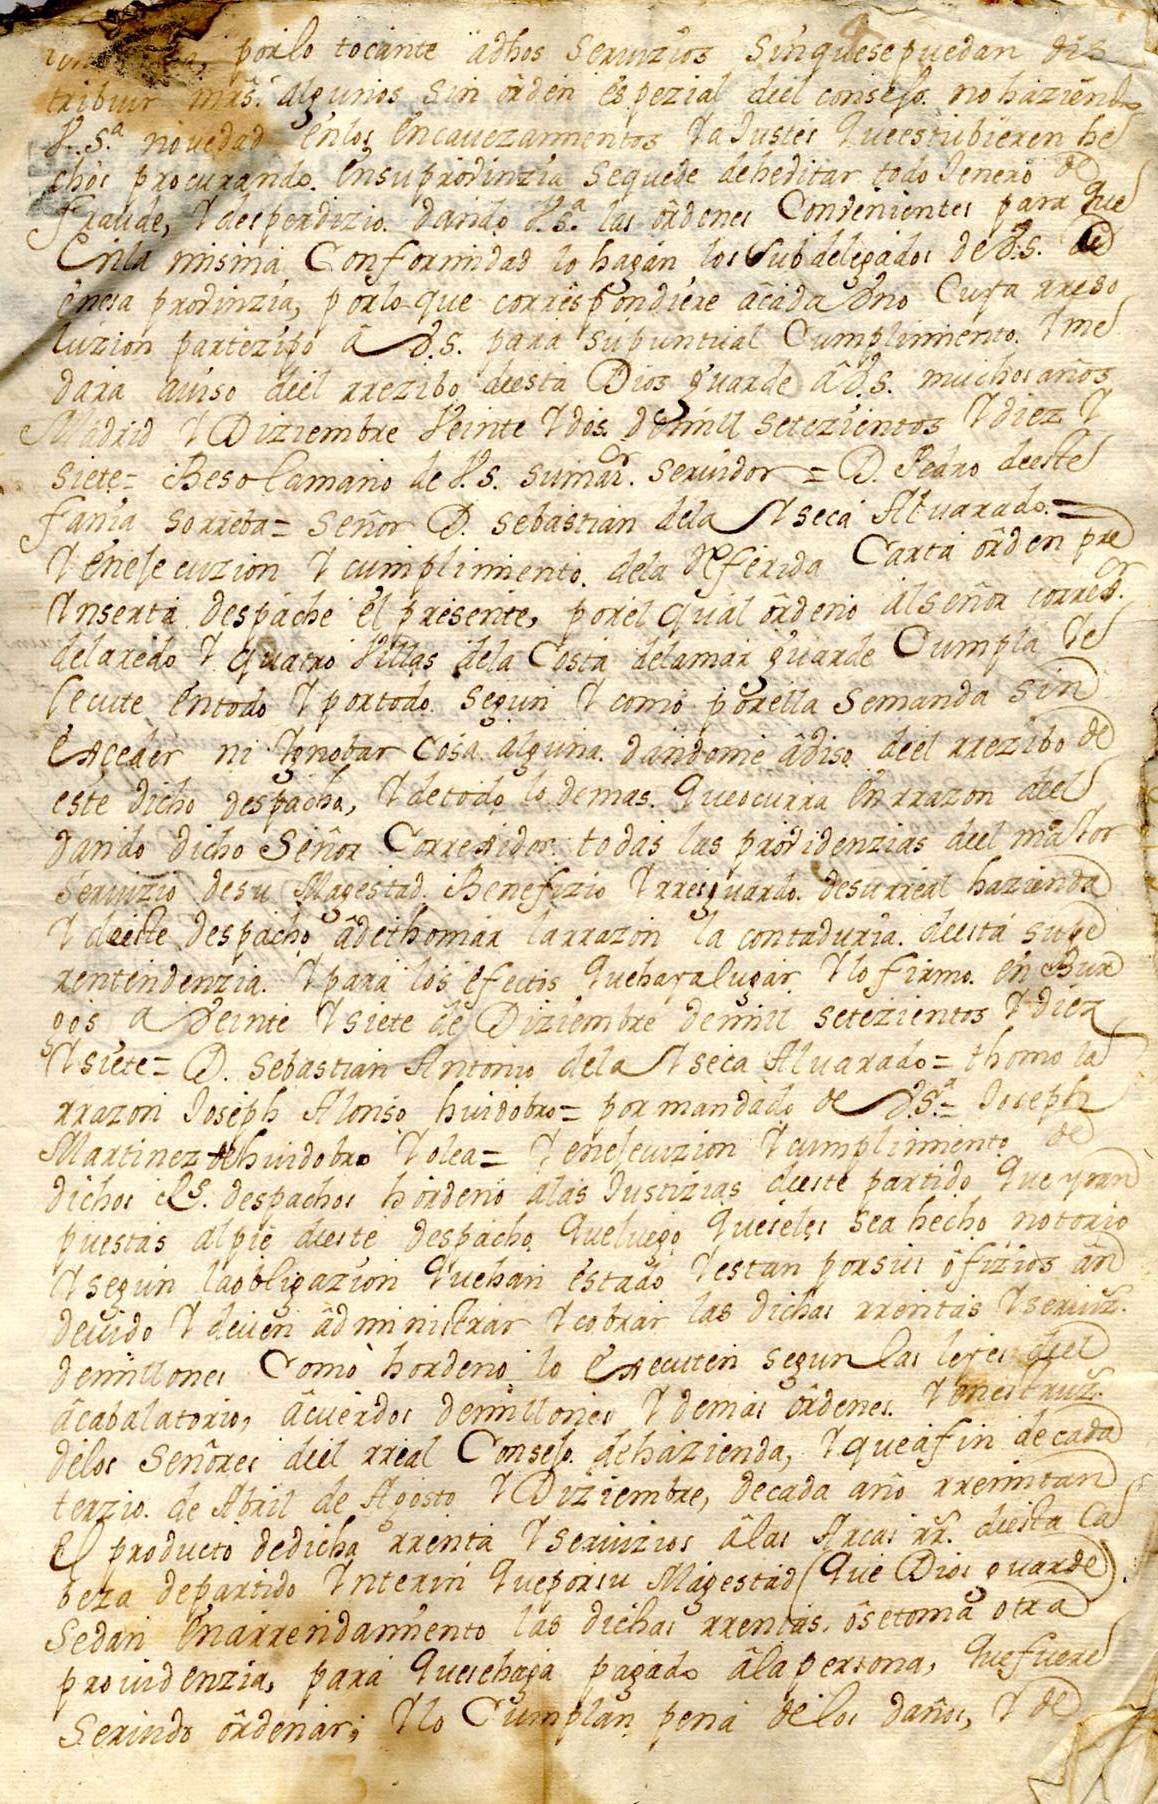 por lo tocante adhos Servizios sinquesepuedan dis
tribuir mrs. algunos sin orden espezial del consejo. no haziendo
V.Sª novedad enlos Encavezamientos Y aJustes Queestubieren he
chos procurando. Ensuprovinzia sequede deheditar todo Jenero de
fraude, Y desperdizio. dando V.Sª las ordenes Convenientes para que
Enla misma Conformidad lo hagan los subdelegados de V.S. de
enesa provinzia, porlo que correspondiere acada Vno Cuya rreso
luzion partezipo a V.S. para supuntual Cumplimiento. Y me
dara aviso del rrezibo desta Dios guarde a V.S. muchos años
Madrid Y Diziembre Veinte Y dos. de mill setezientos Y diez Y
siete= Beso lamano de V.S. sumaior. servidor = D. Pedro deeste
fania sorreba= señor D. sebastian dela Yseca Alvarado.=
Y enejecuzion Y cumplimiento. dela Referida Carta orden pre
Ynserta despache el presente, porel qual ordeno alseñor corregor.
delaredo Y quatro Villas dela Costa delamar guarde Cumpla Y e
Jecute Entodo Y portodo. segun Y como porella semanda sin
Exceder ni Ynobar Cosa. alguna. dandome aviso. deel rrezibo de
este dicho despacho, Y detodo lo demas. Queocurra Enrrazon deel
dando dicho Señor Corregidor. todas las providenzias deel maior
servizio desu Magestad. Benefizio Y rresguardo. desurreal hazienda
Y deeste despacho adethomar larrazon la contaduria. deesta supe
rentendenzia. Y para los efectos Quehaya lugar Y lo firmo. en Bur
gos a Veinte Y siete de Diziembre demil setezientos Y diez
Ysiete= D. Sebastian Antonio dela Yseca Alvarado= thomo la
rrazon Joseph Alonso huidobro= por mandado de V.Sª= Joseph
Martinez dehuidobro Y olea= Y enejecuzion Y cumplimiento de
dichos Rs. despachos hordeno alas Justizias deeste partido Que yran
puestas alpie deeste despacho Queluego Queseles sea hecho notorio
Ysegun laobligazion Quehan estado Y estan porsus ofizios an
devido Y deven administrar Y cobrar las dichas rrentas Y serviz.
demillones Como hordeno lo Executen segun las leyes del
acabalatorio, acuerdos demillones Y demas ordenes. Y enestruz.
delos señores deel rreal Consejo. dehazienda, Y queafin decada
terzio. de Abril de Agosto Y Diziembre, decada año rremitan
El producto dedicha rrenta Y servizios alas Arcas rr. deesta Ca
beza departido Ynterin Queporsu Magestad (que Dios guarde)
sedan Enarrendamiento las dichas rrentas. osetoma otra
providenzia, para Quesehaga pagado alapersona, Quefuere
servido ordenar; Y lo Cumplan pena delos daños, Y de